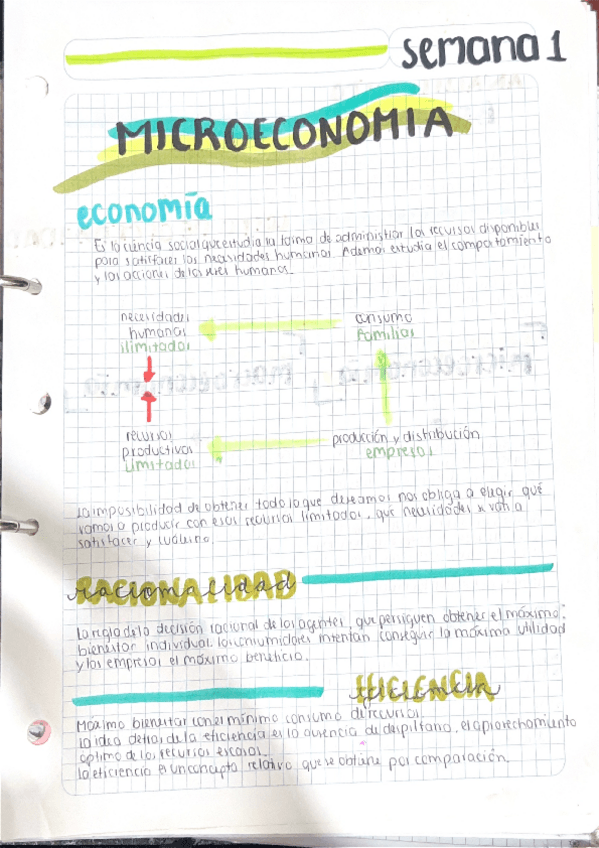 semana 1
MICROECONOMIA
economía
Es la ciencia social que estudia la forma de administrar los recursos disponibles
para satisfacer las necesidades humanas. Además estudia el comportamiento
y las acciones de los seres humanos.
necesidades
humanas
ilimitadas
consumo
familias
recursos
productivos
limitados
producción y distribución
empresas
La imposibilidad de obtener todo lo que deseamos nos obliga a elegir qué
vamos a producir con esos recursos limitados, qué necesidades se van a
satisfacer y cuáles no.
RACIONALIDAD
racionalidad
La regla de la decisión racional de los agentes, que persiguen obtener el máximo
bienestar individual. Los consumidores intentan conseguir la máxima utilidad
y las empresas el máximo beneficio.
EFICIENCIA
eficiencia
Máximo bienestar con el mínimo consumo de recursos.
La idea detrás de la eficiencia es la ausencia de despilfarro, el aprovechamiento
óptimo de los recursos escasos.
La eficiencia es un concepto relativo que se obtiene por comparación.